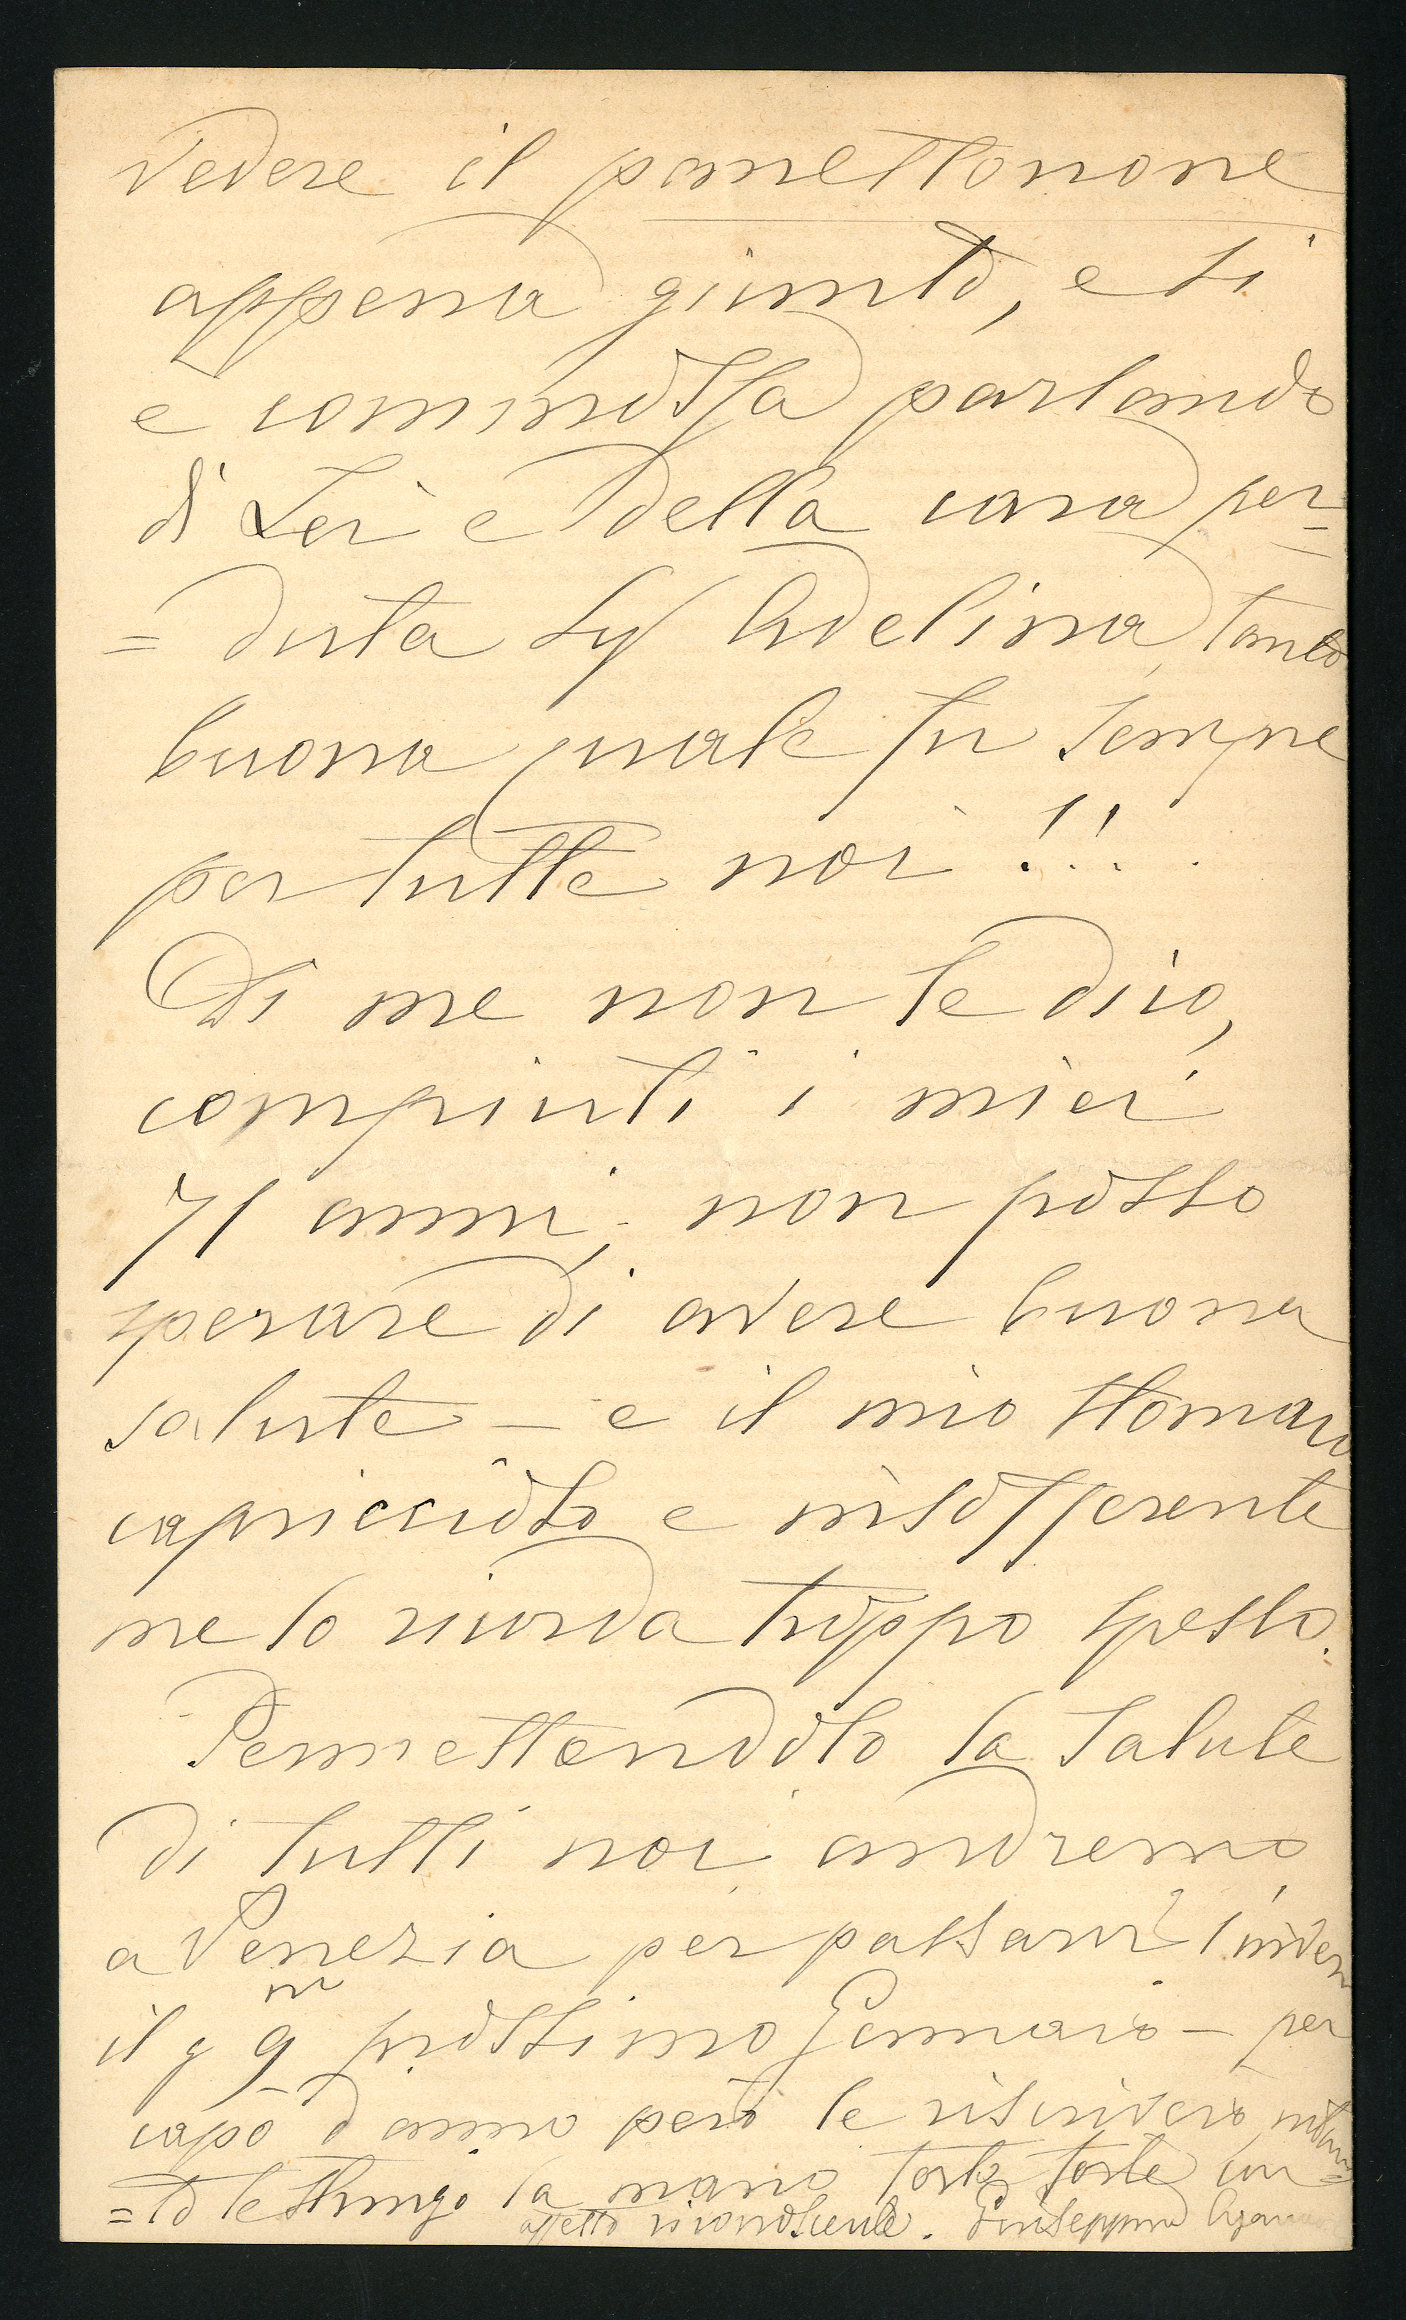 vedere il panettonone
appena giunto, e si
è commossa parlando
di Lei e della cara per
= duta Sig Adelina, tanto
buona quale fu sempre
per tutte noi !!.
Di me non le dico,
compiuti i miei
71 anni, non posso
sperare di avere buona
salute - e il mio stomaco
capriccioso e insofferente
me lo ricorda troppo spesso.
Permettendolo la salute
di tutti noi andremo
a Venezia per passarvi l'inver
il g 9 prossimo Gennaio - per
capo d'anno però le riscriverò, intan=
= to le stringo la mano forte forte con
affetto riconoscente. Giuseppina